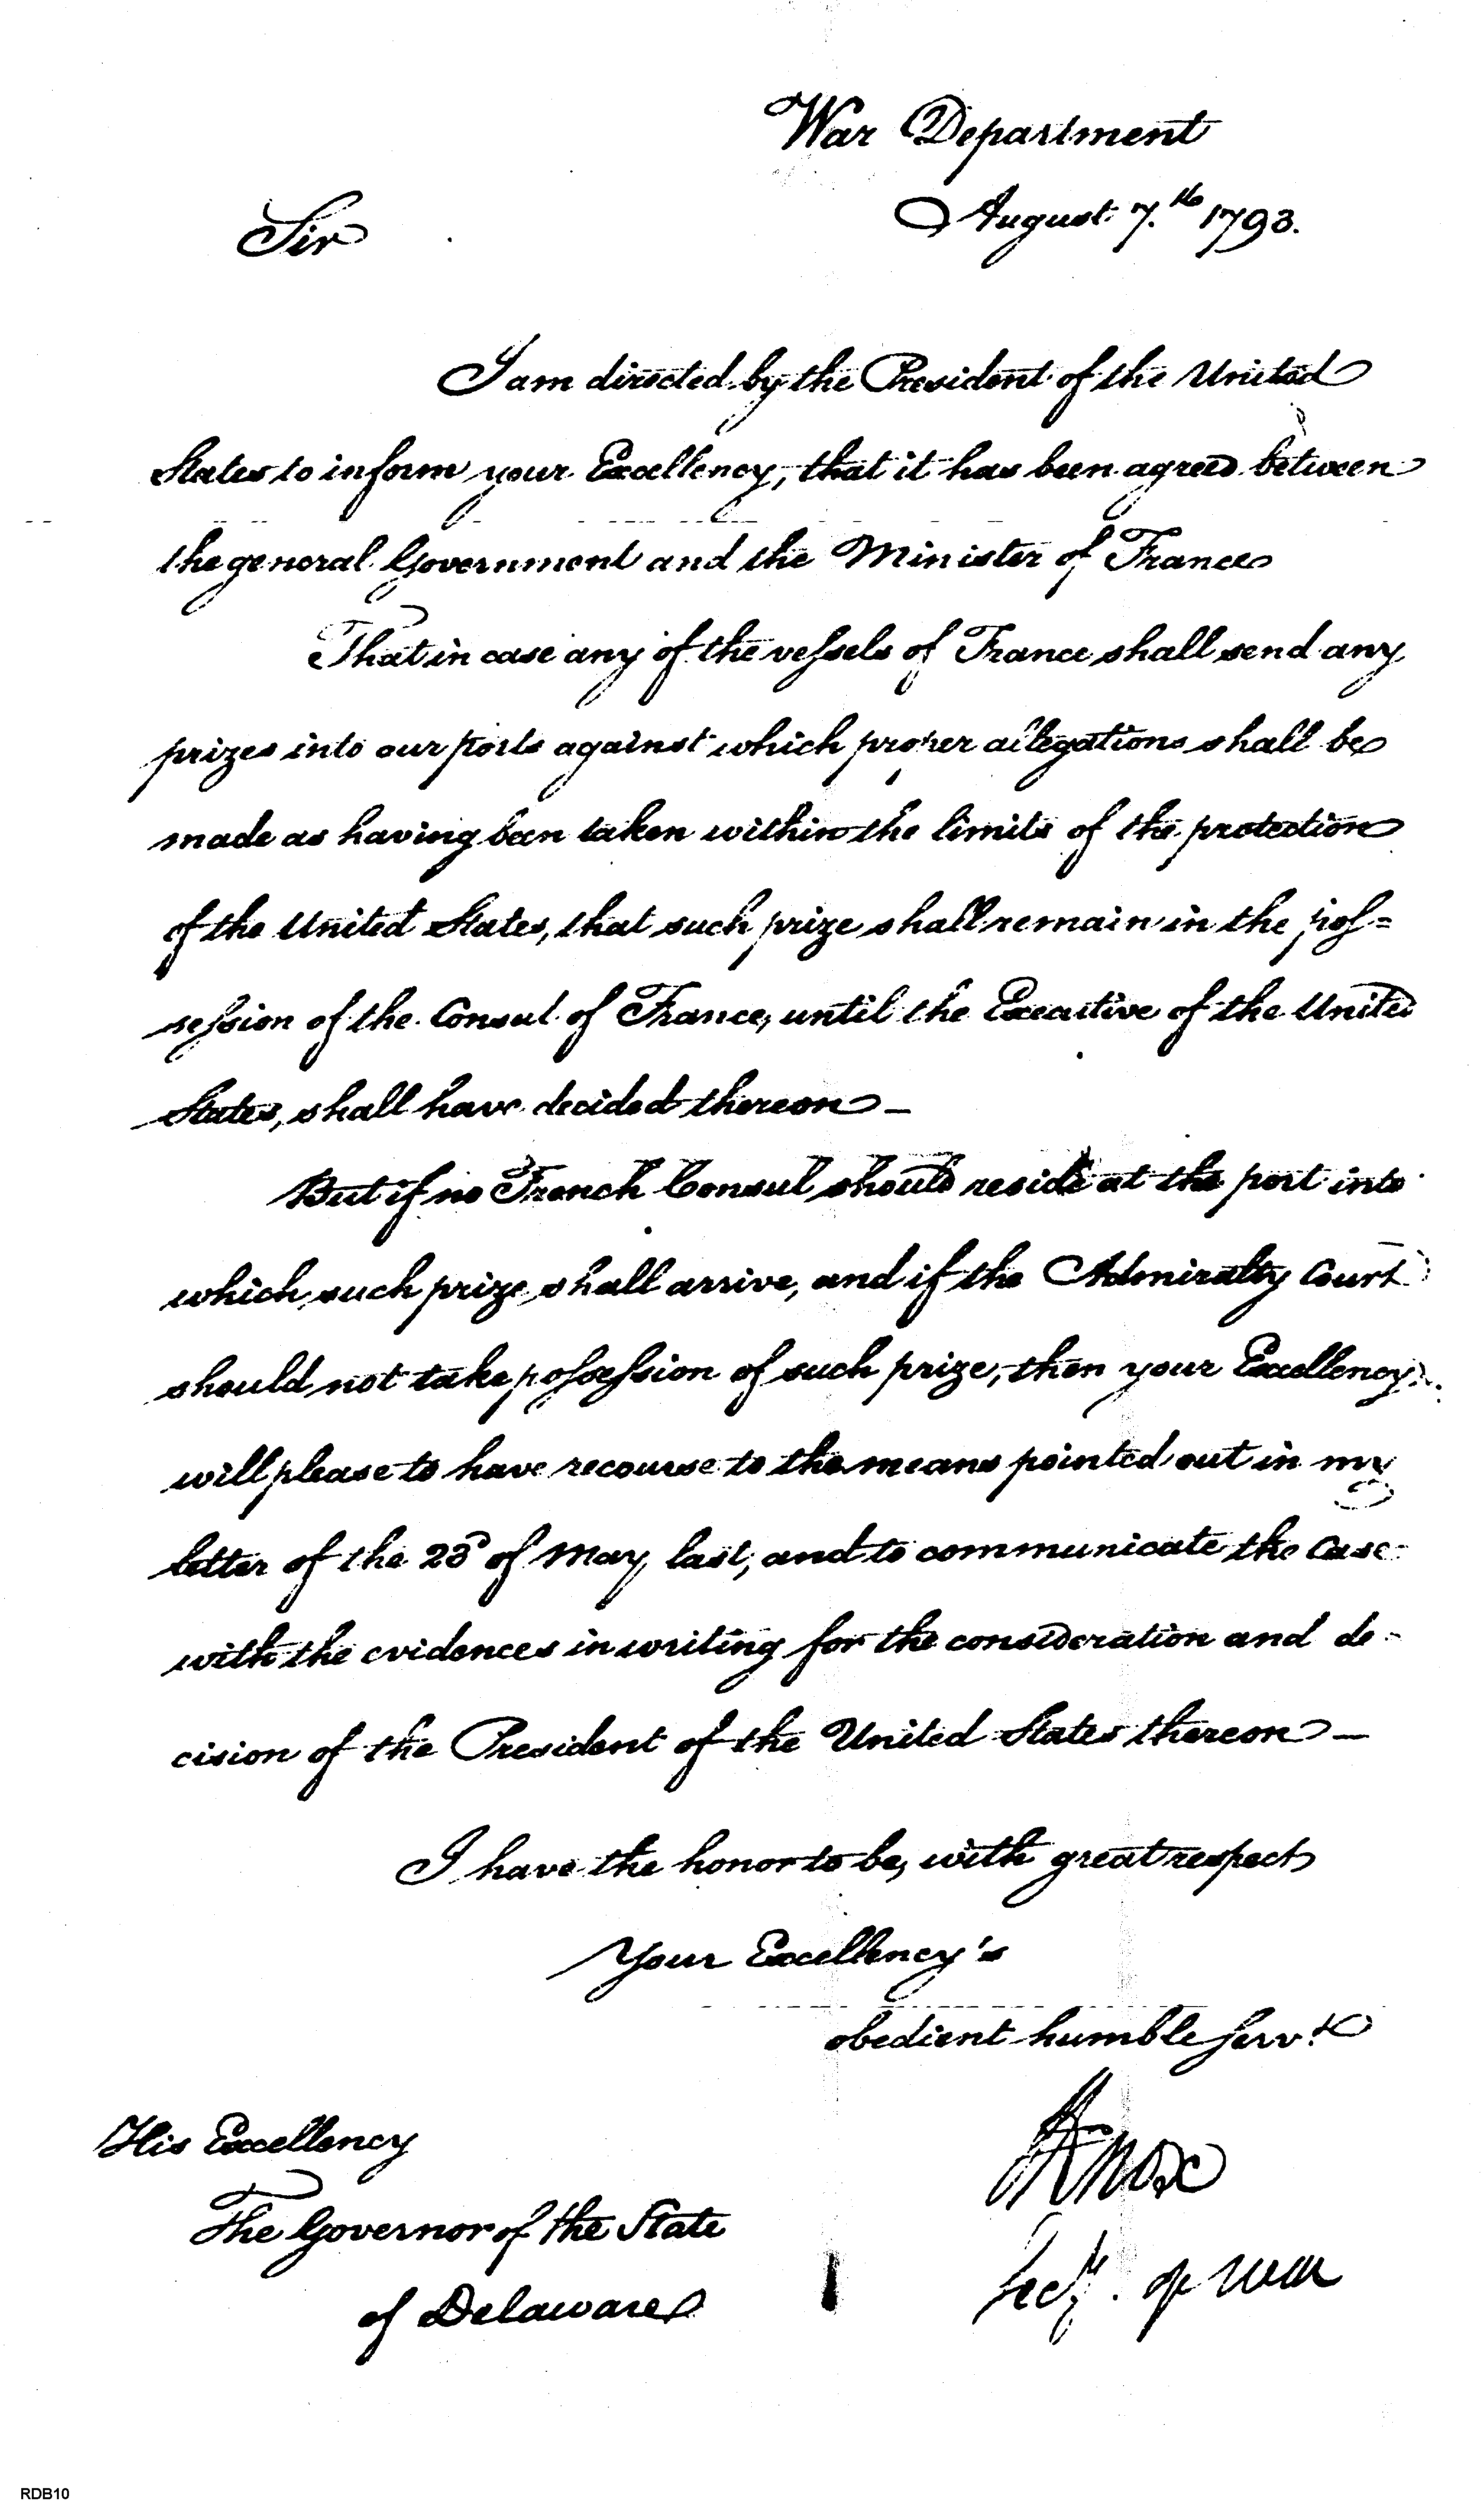 War Department
August 7.th 1793.
Sir
I am directed by the President of the United
States to inform your Excellency, that it has been agreed between
the general Government and the Minister of France
That in case any of the vessels of France shall send any
prizes into our ports against which proper allegations shall be
made as having been taken within the limits of the protection
of the United States, that such prize shall remain in the pos=
session of the Consul of France, until the Executive of the United
States, shall have decided thereon—
But if no French Consul should reside at the port into
which such prize shall arrive, and if the Admiralty Court
should not take possession of such prize, then your Excellency
will please to have recourse to the means pointed out in my
letter of the 23d of May last, and to communicate the Case
with the evidences in writing for the consideration and de-
cision of the President of the United States thereon—
I have the honor to be, with great respect
Your Excellency's
obedient humble Servt
HKnox
Secy. of War
His Excellency
The Governor of the State
of Delaware
RDB10